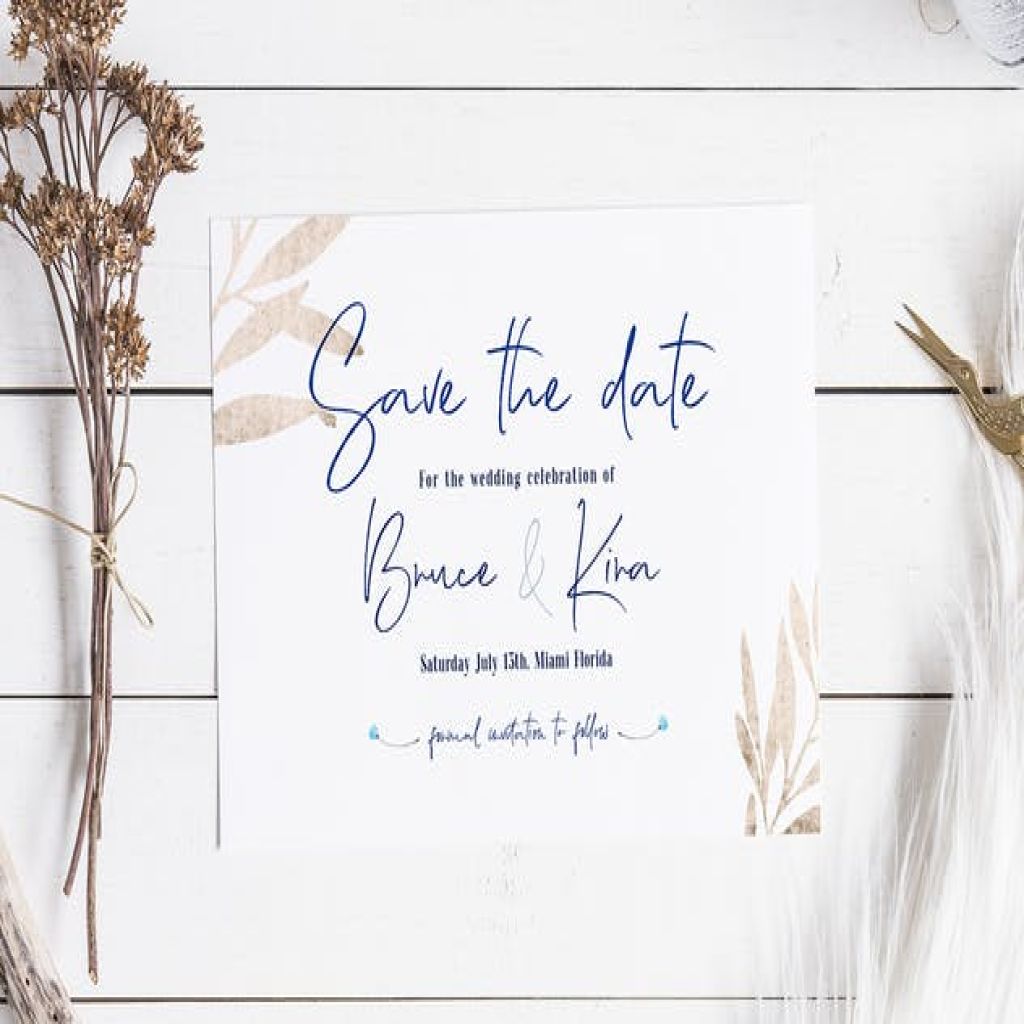 Save the date
For the wedding celebration of
Bruce & Kira
Saturday July 15th, Miami Florida
formal invitation to follow